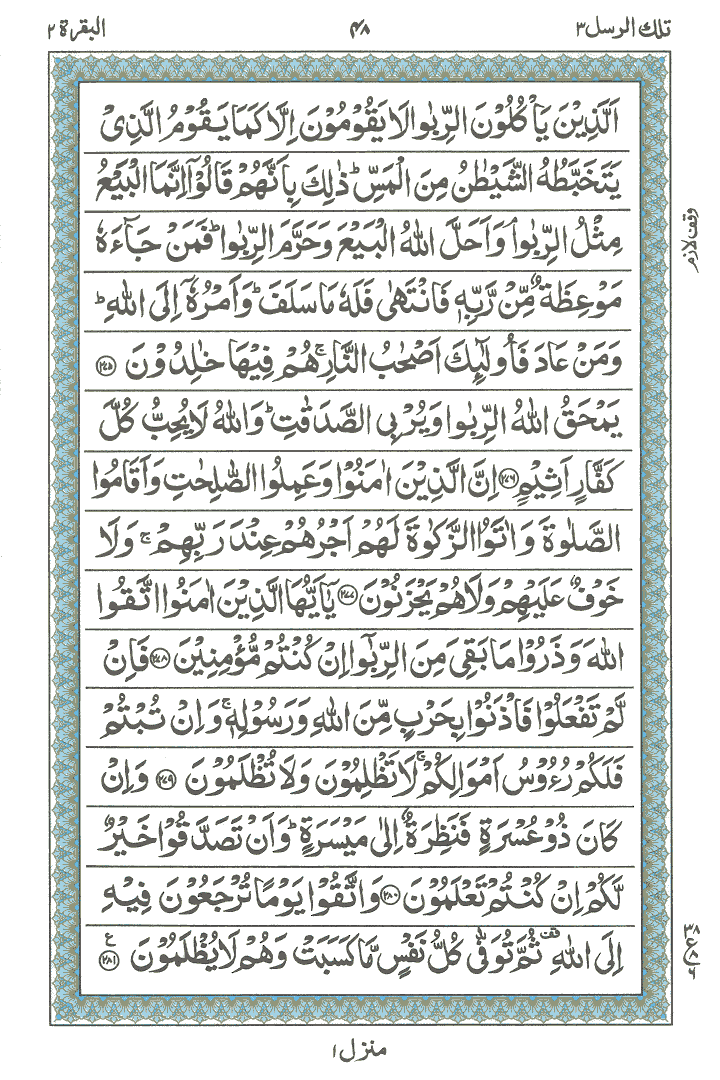 تلك الرسل ٣ ٤٨ البقرة ٢
اَلَّذِيْنَ يَاْكُلُوْنَ الرِّبٰوا لَا يَقُوْمُوْنَ اِلَّا كَمَا يَقُوْمُ الَّذِىْ
يَتَخَبَّطُهُ الشَّيْطٰنُ مِنَ الْمَسِّ ؕ ذٰلِكَ بِاَنَّهُمْ قَالُوْۤا اِنَّمَا الْبَيْعُ
مِثْلُ الرِّبٰوا ۘ وَاَحَلَّ اللّٰهُ الْبَيْعَ وَحَرَّمَ الرِّبٰوا ؕ فَمَنْ جَآءَهٗ
وقف لازم
مَوْعِظَةٌ مِّنْ رَّبِّهٖ فَانْتَهٰى فَلَهٗ مَا سَلَفَ ؕ وَاَمْرُهٗۤ اِلَى اللّٰهِ ؕ
وَمَنْ عَادَ فَاُولٰٓئِكَ اَصْحٰبُ النَّارِ ۚ هُمْ فِيْهَا خٰلِدُوْنَ ﴿٢٧٥﴾
يَمْحَقُ اللّٰهُ الرِّبٰوا وَيُرْبِى الصَّدَقٰتِ ؕ وَاللّٰهُ لَا يُحِبُّ كُلَّ
كَفَّارٍ اَثِيْمٍ ﴿٢٧٦﴾ اِنَّ الَّذِيْنَ اٰمَنُوْا وَعَمِلُوا الصّٰلِحٰتِ وَاَقَامُوا
الصَّلٰوةَ وَاٰتَوُا الزَّكٰوةَ لَهُمْ اَجْرُهُمْ عِنْدَ رَبِّهِمْ ۚ وَلَا
خَوْفٌ عَلَيْهِمْ وَلَا هُمْ يَحْزَنُوْنَ ﴿٢٧٧﴾ يٰۤاَيُّهَا الَّذِيْنَ اٰمَنُوا اتَّقُوا
اللّٰهَ وَذَرُوْا مَا بَقِىَ مِنَ الرِّبٰۤوا اِنْ كُنْتُمْ مُّؤْمِنِيْنَ ﴿٢٧٨﴾ فَاِنْ
لَّمْ تَفْعَلُوْا فَاْذَنُوْا بِحَرْبٍ مِّنَ اللّٰهِ وَرَسُوْلِهٖ ۚ وَاِنْ تُبْتُمْ
فَلَكُمْ رُءُوْسُ اَمْوَالِكُمْ ۚ لَا تَظْلِمُوْنَ وَلَا تُظْلَمُوْنَ ﴿٢٧٩﴾ وَاِنْ
كَانَ ذُوْ عُسْرَةٍ فَنَظِرَةٌ اِلٰى مَيْسَرَةٍ ؕ وَاَنْ تَصَدَّقُوْا خَيْرٌ
لَّكُمْ اِنْ كُنْتُمْ تَعْلَمُوْنَ ﴿٢٨٠﴾ وَاتَّقُوْا يَوْمًا تُرْجَعُوْنَ فِيْهِ
اِلَى اللّٰهِ ۗ ثُمَّ تُوَفّٰى كُلُّ نَفْسٍ مَّا كَسَبَتْ وَهُمْ لَا يُظْلَمُوْنَ ﴿٢٨١﴾ ع
٣٨ ع ٨ ٦
منزل ١